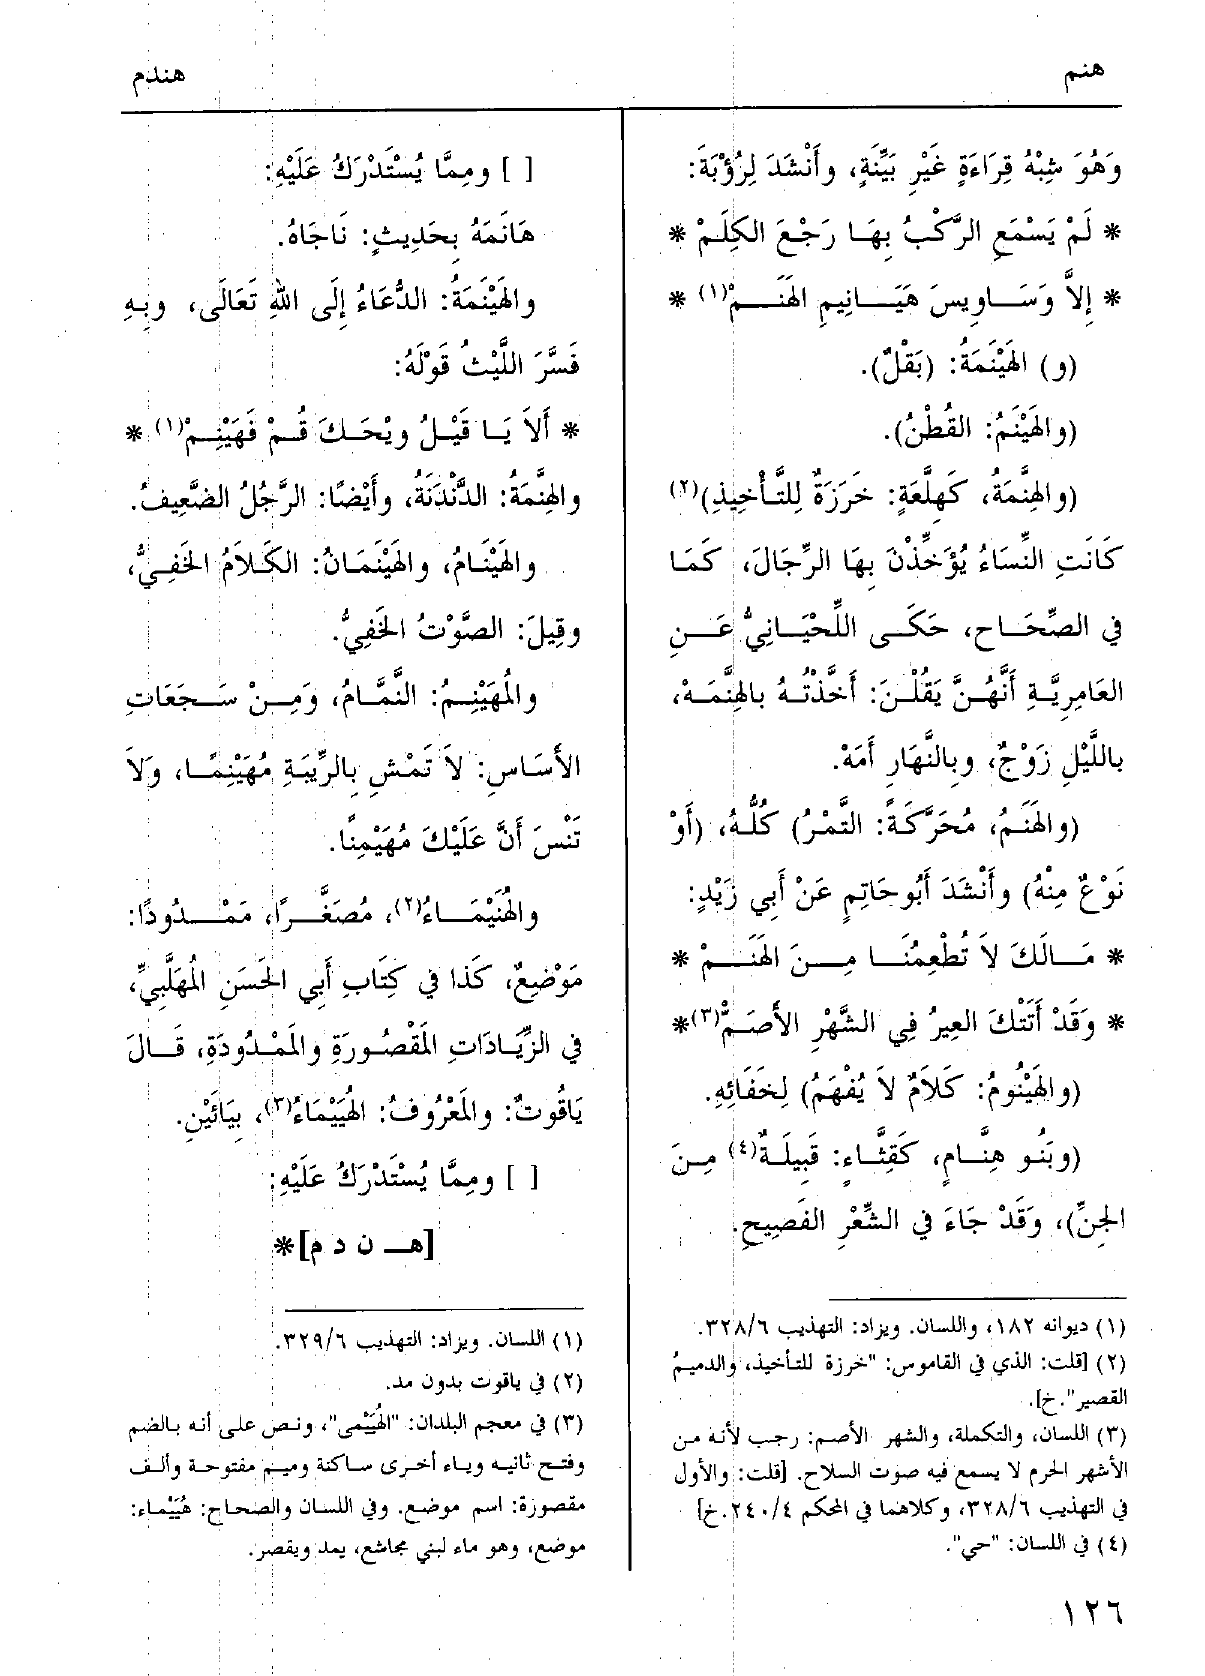 هنم
هندم
وَهُوَ شِبْهُ قِرَاءَةٍ غَيْرِ بَيِّنَةٍ، وأَنْشَدَ لِرُؤْبَةَ:
* لَمْ يَسْمَعِ الرَّكْبُ بِهَا رَجْعَ الكِلَمْ *
* إِلاَّ وَسَاوِيسَ هَيَانِيمِ الهَنَمْ(١) *
(و) الهَيْنَمَةُ: (بَقْلٌ).
(والهَيْنَمُ: القُطْنُ).
(والهِنَّمَةُ، كَهِلَّعَةٍ: خَرَزَةٌ لِلتَّأْخِيذِ)(٢)
كَانَتِ النِّسَاءُ يُؤَخِّذْنَ بِهَا الرِّجَالَ، كَمَا
في الصِّحَاحِ، حَكَى اللِّحْيَانِيُّ عَنِ
العَامِرِيَّةِ أَنَّهُنَّ يَقُلْنَ: أَخَّذْتُهُ بالهِنَّمَهْ،
بِاللَّيْلِ زَوْجٌ، وبِالنَّهَارِ أَمَهْ.
(والهَنَمُ، مُحَرَّكَةً: التَّمْرُ) كُلُّهُ، (أَوْ
نَوْعٌ مِنْهُ) وأَنْشَدَ أَبُو حَاتِمٍ عَنْ أَبِي زَيْدٍ:
* مَالَكَ لاَ تُطْعِمُنَا مِنَ الهَنَمْ *
* وَقَدْ أَتَتْكَ العِيرُ فِي الشَّهْرِ الأَصَمّْ(٣)*
(والهَيْنُومُ: كَلاَمٌ لاَ يُفْهَمُ) لِخَفَائِهِ.
(وبَنُو هِنَّامٍ، كَقِثَّاءٍ: قَبِيلَةٌ(٤) مِنَ
الجِنِّ)، وَقَدْ جَاءَ في الشِّعْرِ الفَصِيحِ.
(١) ديوانه ١٨٢، واللسان. ويزاد: التهذيب ٣٢٨/٦.
(٢) [قلت: الذي في القاموس: "خرزة للتأخيذ، والدميمُ
القصير".خ].
(٣) اللسان، والتكملة، والشهر الأصم: رجب لأنه من
الأشهر الحرم لا يسمع فيه صوت السلاح. [قلت: والأول
في التهذيب ٣٢٨/٦، وكلاهما في المحكم ٢٤٠/٤.خ]
(٤) في اللسان: "حي".
[ ] ومِمَّا يُسْتَدْرَكُ عَلَيْهِ:
هَانَمَهُ بِحَدِيثٍ: نَاجَاهُ.
والهَيْنَمَةُ: الدُّعَاءُ إِلَى اللهِ تَعَالَى، وبِهِ
فَسَّرَ اللَّيْثُ قَوْلَهُ:
* أَلاَ يَا قَيْلُ ويْحَكَ قُمْ فَهَيْنِمْ(١) *
والهِنَّمَةُ: الدَّنْدَنَةُ، وأَيْضًا: الرَّجُلُ الضَّعِيفُ.
والهَيْنَامُ، والهَيْنَمَانُ: الكَلاَمُ الخَفِيُّ،
وقِيلَ: الصَّوْتُ الخَفِيُّ.
والمُهَيْنِمُ: النَّمَّامُ، وَمِنْ سَجَعَاتِ
الأَسَاسِ: لاَ تَمْشِ بِالرِّيبَةِ مُهَيْنِمًا، وَلاَ
تَنْسَ أَنَّ عَلَيْكَ مُهَيْمِنًا.
والهُنَيْمَاءُ(٢)، مُصَغَّرًا، مَمْدُودًا:
مَوْضِعٌ، كَذا في كِتَابِ أبي الحَسَنِ المُهَلَّبِيِّ،
في الزِّيَادَاتِ المَقْصُورَةِ والمَمْدُودَةِ، قَالَ
يَاقُوتٌ: والمَعْرُوفُ: الهُيَيْمَاءُ(٣)، بِيَائَيْنِ.
[ ] ومِمَّا يُسْتَدْرَكُ عَلَيْهِ:
[هـ ن د م]*
(١) اللسان. ويزاد: التهذيب ٣٢٩/٦.
(٢) في ياقوت بدون مد.
(٣) في معجم البلدان: "الهُيَيْمَى"، ونص على أنه بالضم
وفتح ثانيه وياء أخرى ساكنة وميم مفتوحة وألف
مقصورة: اسم موضع. وفي اللسان والصحاح: هُيَيْماء:
موضع، وهو ماء لبني مجاشع، يمد ويقصر.
١٢٦